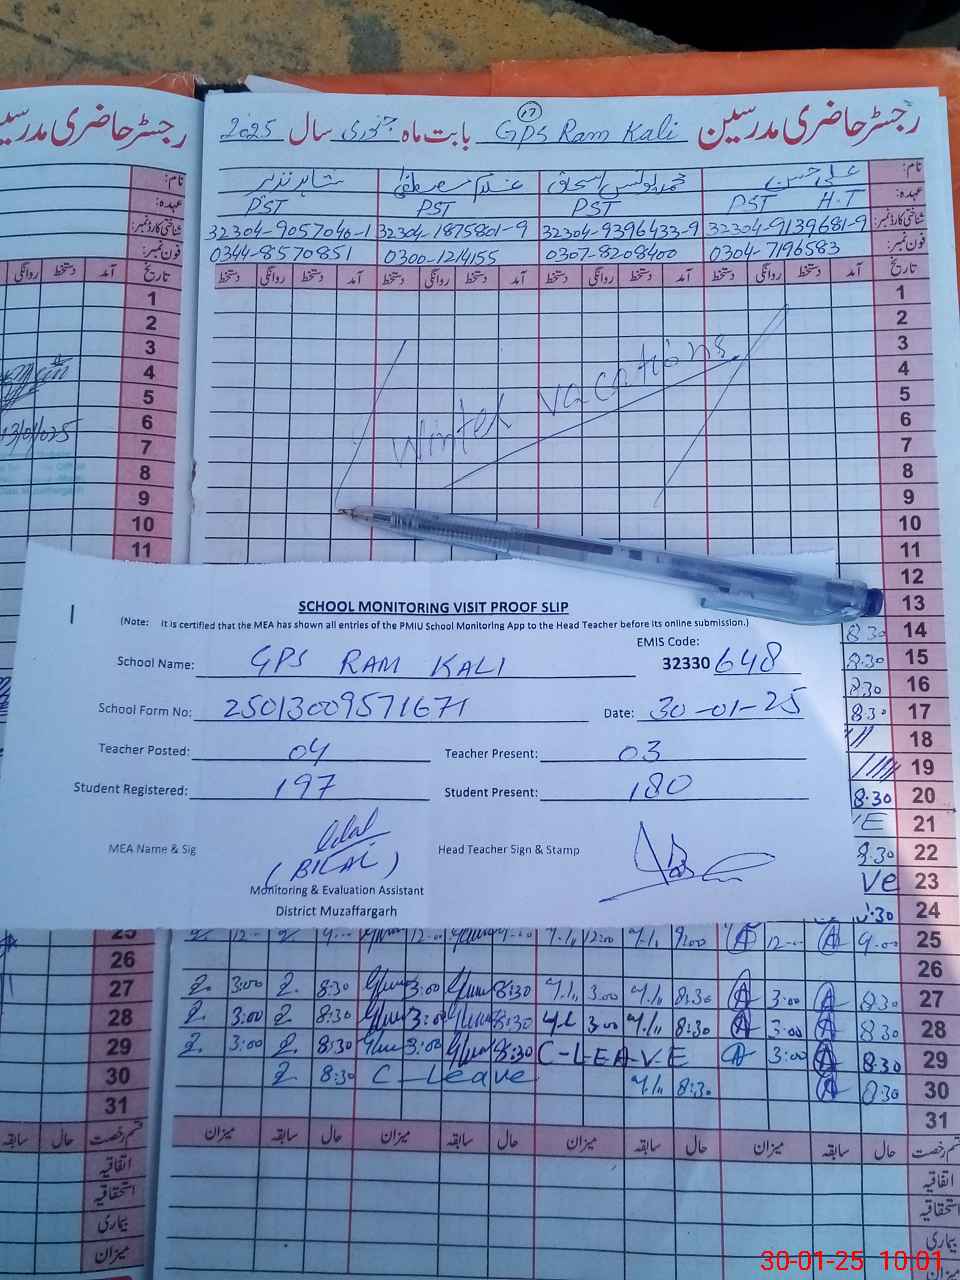 رجسٹر حاضری مدرسین GPS Ram Kali بابت ماہ جنوری سال 2025
17
نام: علی حسن محمد یونس اسحاق غلام مصطفیٰ شاہد نذیر
عہدہ: PST H.T PST PST PST
شناختی کارڈ نمبر: 32304-9139681-9 32304-9396433-9 32304-1875801-9 32304-9057040-1
فون نمبر: 0304-7196583 0307-8208400 0300-1214155 0344-8570851
تاریخ آمد دستخط روانگی دستخط آمد دستخط روانگی دستخط آمد دستخط روانگی دستخط آمد دستخط روانگی دستخط
1
2
3
4
5
6
7
8
9
10
11
12
13
Winter vacations
14 8:30
15 8:30
16 8:30
17 8:30
18
19
20 8:30
21
22 8:30
23 ve
24 8:30
SCHOOL MONITORING VISIT PROOF SLIP
(Note: It is certified that the MEA has shown all entries of the PMIU School Monitoring App to the Head Teacher before its online submission.)
School Name: GPS RAM KALI EMIS Code: 32330 648
School Form No: 25013009571671 Date: 30-01-25
Teacher Posted: 04 Teacher Present: 03
Student Registered: 197 Student Present: 180
MEA Name & Sig (BILAL) Head Teacher Sign & Stamp
Monitoring & Evaluation Assistant
District Muzaffargarh
25 9:00 12:00 9:00 12:00
26
27 8:30 3:00 8:30 3:00 8:30 3:00 8:30 3:00
28 8:30 3:00 8:30 3:00 8:30 3:00 8:30 3:00
29 8:30 3:00 C-LEAVE 8:30 3:00 8:30 3:00
30 8:30 8:30 C-Leave 8:30
31
قسم رخصت حال سابقہ میزان حال سابقہ میزان حال سابقہ میزان حال سابقہ میزان
اتفاقیہ
استحقاقیہ
بیماری
میزان
رجسٹر حاضری
نام:
عہدہ:
شناختی کارڈ نمبر:
فون نمبر:
تاریخ آمد دستخط روانگی
1
2
3
4
5
6
7
8
9
10
11
13/01/025
25
26
27
28
29
30
31
قسم رخصت حال سابقہ
اتفاقیہ
استحقاقیہ
بیماری
میزان
30-01-25 10:01